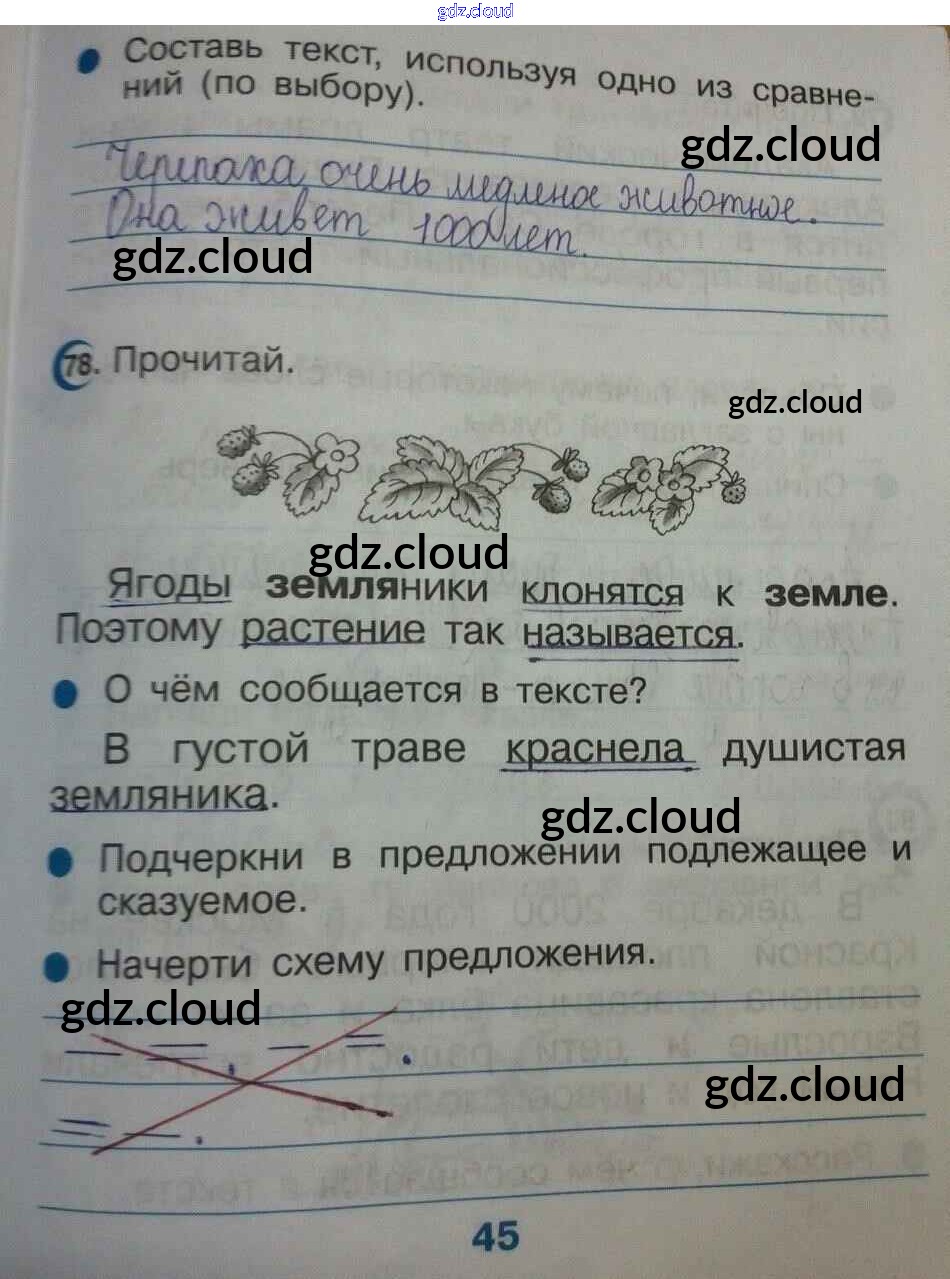 gdz.cloud
Составь текст, используя одно из сравне-
ний (по выбору).
gdz.cloud
Черепаха очень медленое животное.
Она живет 1000 лет.
gdz.cloud
78. Прочитай.
gdz.cloud
gdz.cloud
Ягоды земляники клонятся к земле.
Поэтому растение так называется.
О чём сообщается в тексте?
В густой траве краснела душистая
земляника.
gdz.cloud
Подчеркни в предложении подлежащее и
сказуемое.
Начерти схему предложения.
gdz.cloud
gdz.cloud
45